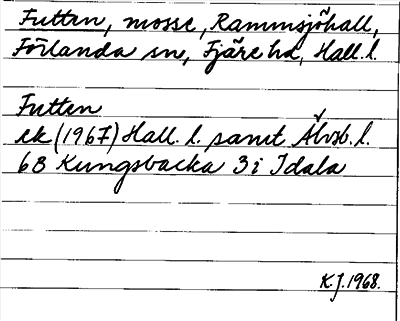 Futten, mosse, Rammsjöhall,
Förlanda sn, Fjäre hd, Hall. l.
Futten
ek (1967) Hall. l. samt Älvsb. l.
6B Kungsbacka 3i Idala
K.J. 1968.